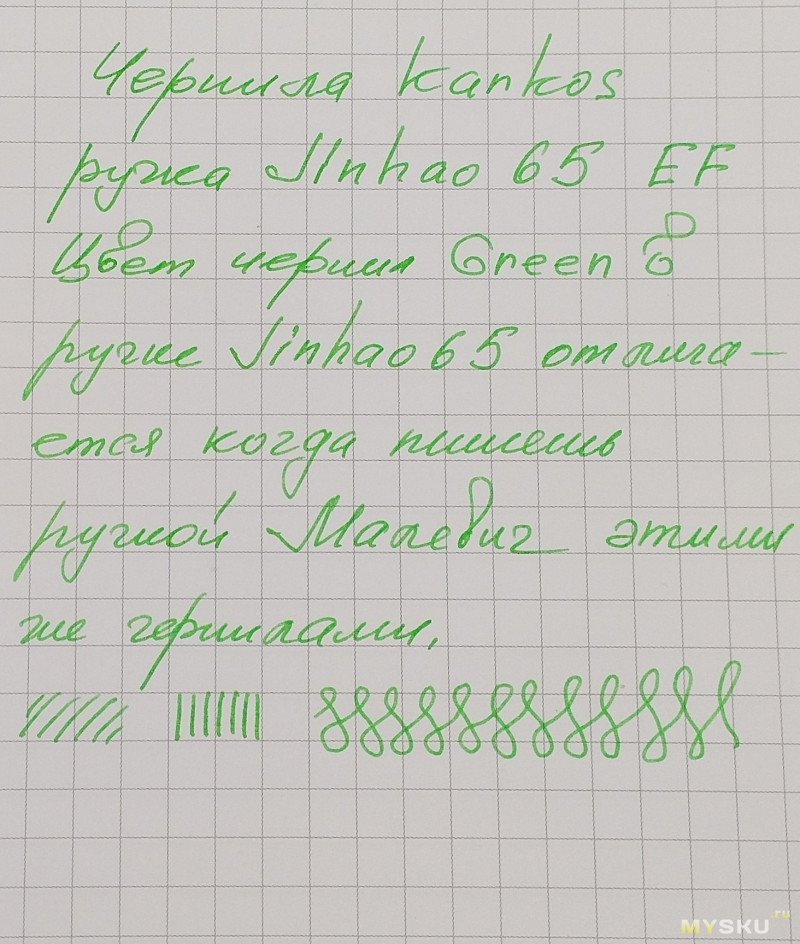 Чернила Kankos
ручка Jinhao 65 EF
Цвет чернил Green в
ручке Jinhao 65 отлича-
ется когда пишешь
ручкой Малевич этими
же чернилами.
MYSKU.ru